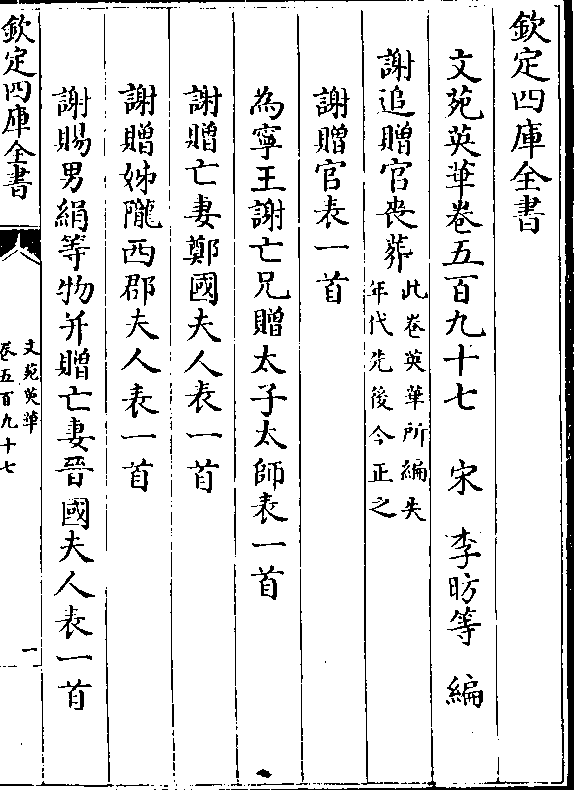 欽定四庫全書
文苑英華卷五百九十七　宋　李昉等　編
謝追贈官喪葬此卷英華所編失年代先後今正之
謝贈官表一首
為寧王謝亡兄贈太子太師表一首
謝贈亡妻鄭國夫人表一首
謝贈姊隴西郡夫人表一首
謝賜男絹等物并贈亡妻晉國夫人表一首
欽定四庫全書
文苑英華
卷五百九十七
一